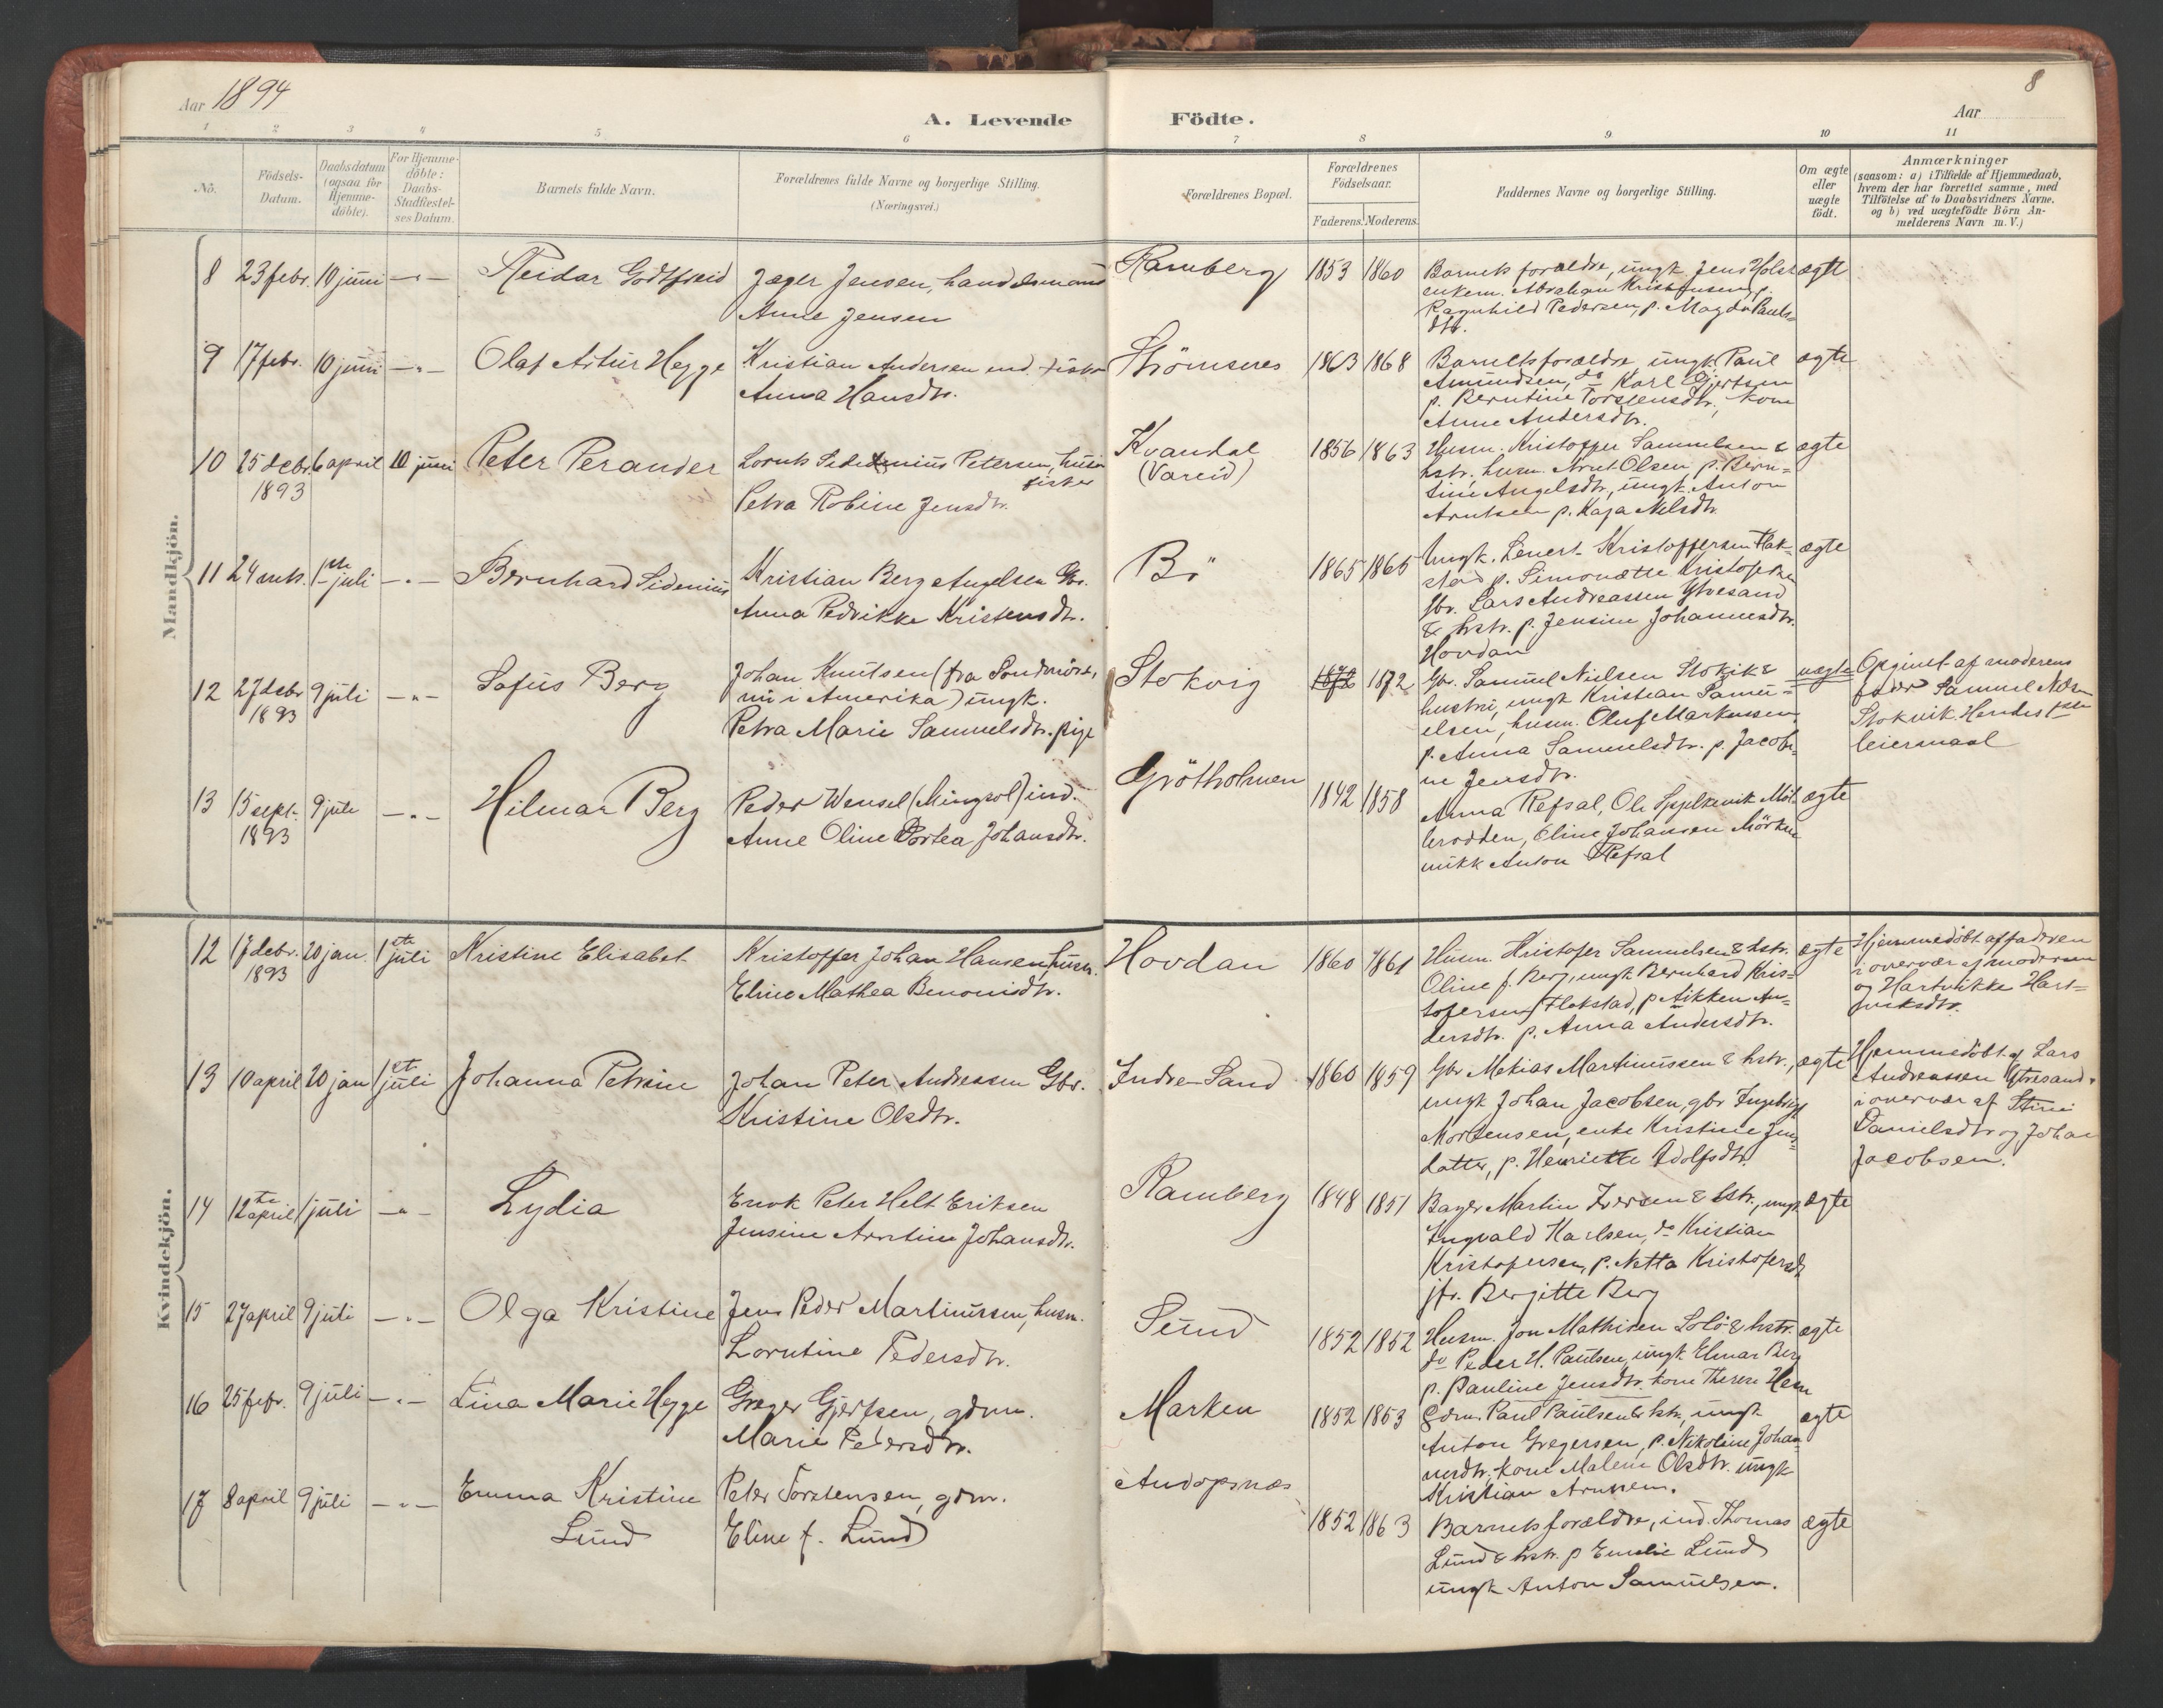 Aar 1894
A. Levende Födte.
Aar
8
1 2 3 4 5 6 7 8 9 10 11
No.
Födsels-Datum.
Daabsdatum (ogsaa for Hjemme-döbte).
For Hjemme-döbte: Daabs-Stadfæstel-ses Datum.
Barnets fulde Navn.
Forældrenes fulde Navne og borgerlige Stilling.
(Næringsvei.)
Forældrenes Bopæl.
Forældrenes Födselsaar.
Faderens. Moderens.
Faddernes Navne og borgerlige Stilling.
Om ægte eller uægte födt.
Anmærkninger
(saasom: a) i Tilfælde af Hjemmedaab,
hvem der har forrettet samme, med
Tilföielse af to Daabsvidners Navne,
og b) ved uægtefödte Börn An-
melderens Navn m. V.)
Mandkjön.
8 23 febr. 10 juni -"- Reidar Godtfred
Jæger Jensen, handelsmand
Anne Jensen
Ramberg 1853 1860
Barnets forældre, ungk. Jens Holst
enkem. Abraham Kristensen, p.
Ragnhild Pedersen, p. Magda Pauls=
dtr.
ægte
9 17 febr. 10 juni -"- Olaf Artur Hegge
Kristian Andersen ind. fisker
Anna Hansdtr.
Strömsnes 1863 1868
Barnets forældre ungk. Paul
Amundsen, do Karl Gjertsen
p. Berntine Torstensdtr., kone
Anne Andersdtr.
ægte
10 25 debr. 1893 6 april 10 juni Peter Perander
Petersen, husm
fisker
Petra Robine Jensdtr.
Kvandal
(Vareid)
1856 1863
Husm. Kristoffer Samuelsen &
hstr., husm. Arnt Olsen, p. Bern=
tine Angelsdtr., ungk. Anton
Arntsen p. Kaja Nilsdtr.
ægte
11 24 mts. 1ste juli -"- Bernhard Sidenius
Kristian Berg Angelsen Gbr.
Anna Pedrikke Kristensdtr.
Bö 1865 1865
Ungk. Lenert Kristoffersen Flak=
stad p. Simonette Kristofersen
Gbr. Lars Andreassen Ytresand
& hstr. p. Jensine Johannesdtr.
Hovdan
ægte
12 27 debr 1893 9 juli -"- Sofus Berg
Johan Knutsen (fra Söndmöre,
nu i Amerika) ungk.
Petra Marie Samuelsdtr. pige
Stokvig 1872 1872
Gbr. Samuel Nielsen Stokvik &
hustru, ungk Kristian Samu=
elsen, husm. Oluf Markussen,
p. Anna Samuelsdtr. p. Jacobi=
ne Jensdtr.
uægte
Opgivet af moderens
fader Samuel Nilsen
Stokvik. Hendes 1ste
leiermaal
13 15 sept. 1893 9 juli -"- Hilmar Berg
Peder Wensel (Mingsol) ind.
Anne Oline Dortea Johansdtr.
Grötholmen 1842 1858
Anna Refsal, Ole Spjelkevik Möl=
lerodden, Oline Johansen Mörken
Anton Refsal
ægte
Kvindekjön.
12 17 debr. 1893 20 jan. 1ste juli Kristine Elisabet
Kristoffer Johan Hansen, husm.
Eline Mathea Benonisdtr.
Hovdan 1860 1861
Husm. Kristofer Samuelsen & hstr.
Oline f. Berg, ungk. Bernhard Kris=
tofersen Flakstad, p. Aikken An=
dersdtr. p. Anna Andersdtr.
ægte
Hjemmedöbt af faderen
i overvær af moderen
og Hartvikke Hart=
viksdtr.
13 10 april 20 jan 1ste juli Johanna Petrine
Johan Peter Andreasen Gbr.
Kristine Olsdtr.
Indre-Sand 1860 1859
Gbr Mekias Martinussen & hstr.,
ungk Johan Jacobsen, gbr Ingebrigt
Mortensen, enke Kristine Jens=
datter, p. Henriette Adolfsdtr.
ægte
Hjemmedöbt af Lars
Andreassen Ytresand.
i overvær af Stine
Danielsdtr og Johan
Jacobsen.
14 12te april 1 juli -"- Lydia
Enok Peter Helt Eriksen
Jensine Arntine Johansdtr.
Ramberg 1848 1851
Bager Martin Iversen & hstr., ungk
Ingvald Karlsen, do Kristian
Kristofersen, p. Netta Kristofersdt
jfr. Bergitte Berg
ægte
15 27 april 9 juli -"- Olga Kristine
Jens Peder Martinussen, husm.
Lorntine Pedersdtr.
Sund 1852 1852
Husm. Jon Mathisen Solö & hstr.
do Peder H. Paulsen, ungk Elmar Berg
p. Pauline Jensdtr. kone Therese
ægte
16 25 febr. 9 juli -"- Lina Marie Hegge
Greger Gjertsen, gdm.
Marie Pedersdtr.
Marken 1852 1853
Gdm. Paul Paulsen & hstr, ungk
Anton Gregersen, p. Nikoline Johan=
nesdtr., kone Malene Olsdtr. ungk
Kristian Arntsen.
ægte
17 8 april 9 juli -"- Emma Kristine
Lund
Peter Torstensen, gdm.
Eline f. Lund
Andopsnæs 1852 1863
Barnets forældre, ind. Thomas
Lund & hstr. p Emelie Lund
ungk Anton Samuelsen.
ægte